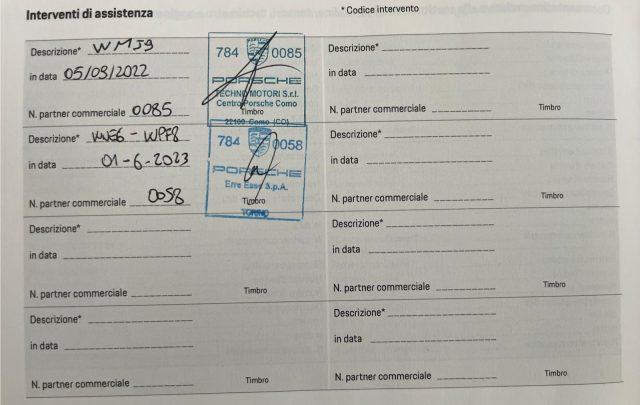 Interventi di assistenza
* Codice intervento
Descrizione* WMJ9
in data 05/09/2022
N. partner commerciale 0085
Timbro
784 0085
PORSCHE
TECHNO MOTORI S.r.l.
Centro Porsche Como
22100 Como (CO)
Descrizione* KNE6 - WPF8
in data 01-6-2023
N. partner commerciale 0058
Timbro
784 0058
PORSCHE
Erre Esse S.p.A.
TORINO
Descrizione*
in data
N. partner commerciale
Timbro
Descrizione*
in data
N. partner commerciale
Timbro
Descrizione*
in data
N. partner commerciale
Timbro
Descrizione*
in data
N. partner commerciale
Timbro
Descrizione*
in data
N. partner commerciale
Timbro
Descrizione*
in data
N. partner commerciale
Timbro